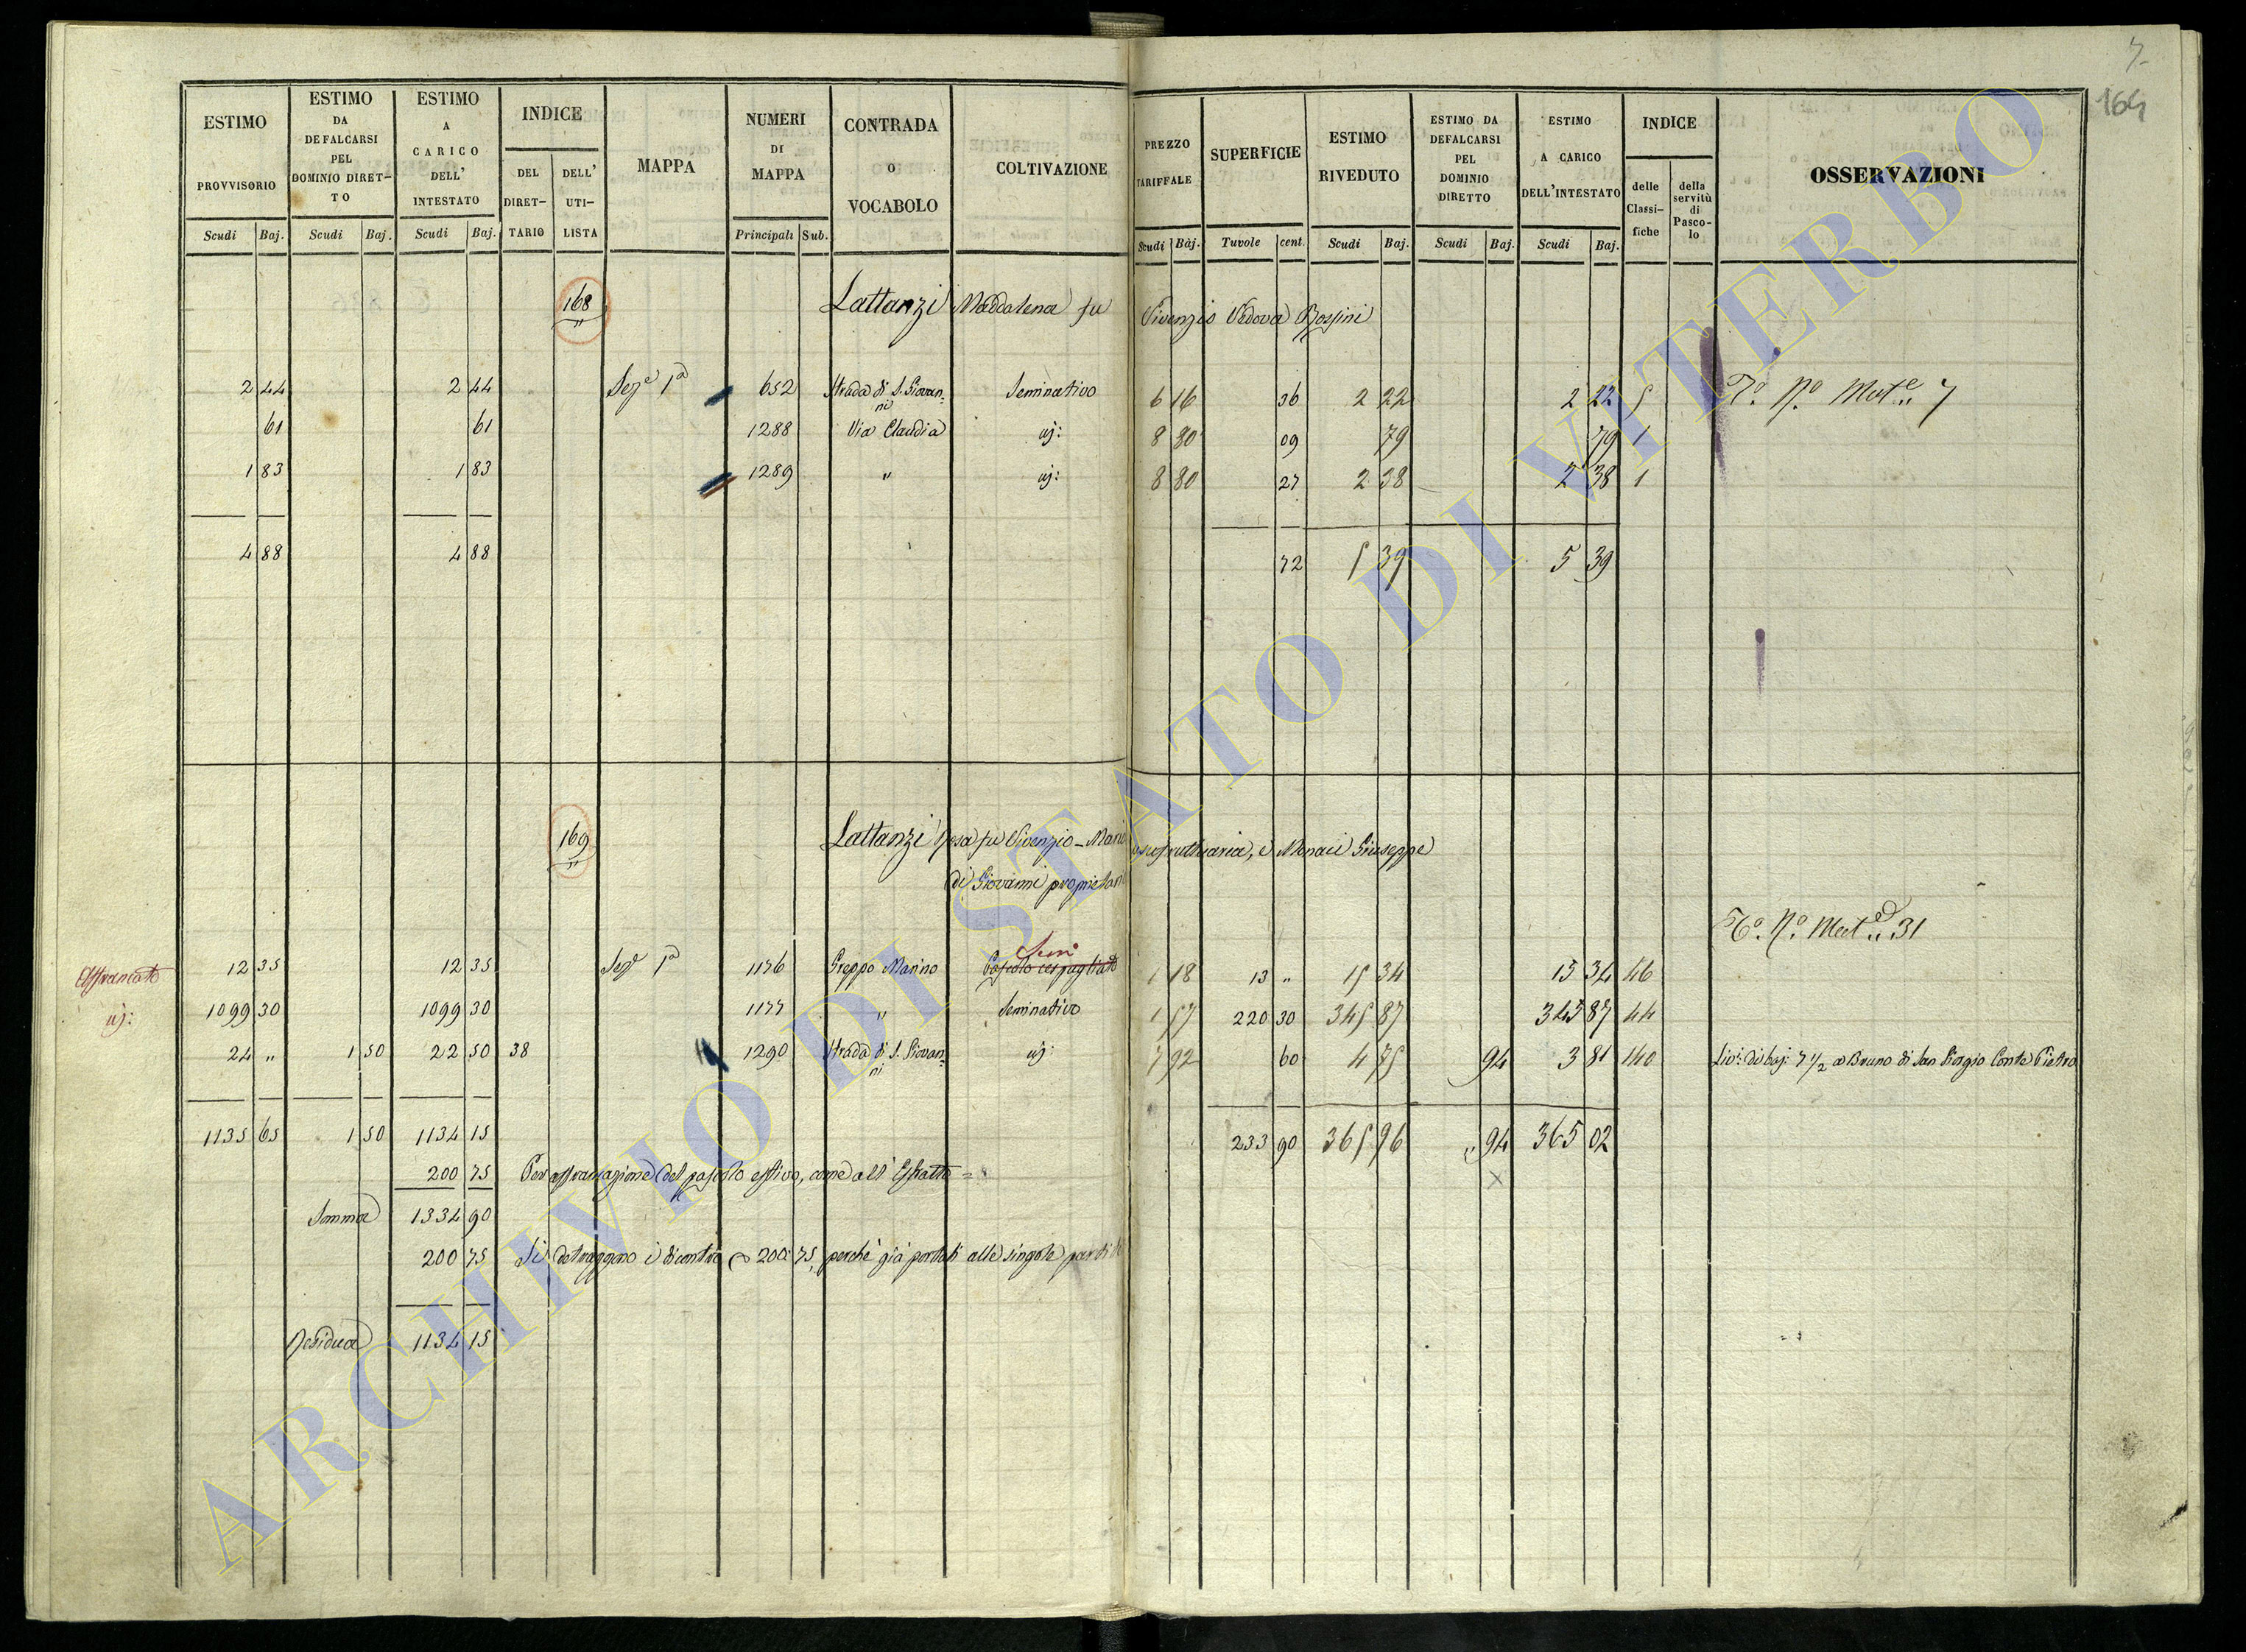 7
164
ESTIMO PROVVISORIO
ESTIMO DA DEFALCARSI PEL DOMINIO DIRET-TO
ESTIMO A CARICO DELL' INTESTATO
INDICE
DEL DIRET-TARIO
DELL' UTI-LISTA
MAPPA
NUMERI DI MAPPA
CONTRADA O VOCABOLO
COLTIVAZIONE
PREZZO TARIFFALE
SUPERFICIE
ESTIMO RIVEDUTO
ESTIMO DA DEFALCARSI PEL DOMINIO DIRETTO
ESTIMO A CARICO DELL'INTESTATO
INDICE
delle Classi-fiche
della servitù di Pasco-lo
OSSERVAZIONI
Scudi Baj. Scudi Baj. Scudi Baj. Principali Sub. Scudi Baj. Tavole cent. Scudi Baj. Scudi Baj. Scudi Baj.
168 Lattanzi Maddalena fu Vivenzio Vedova Rossini
2 44 2 44 Sez.e 1a 652 Strada di S. Giovan=ni Seminativo 6 16 36 2 22 2 22 5 To. No. Mat.e 7
61 61 1288 Via Claudia id: 8 80 09 79 79 1
1 83 1 83 1289 " id: 8 80 27 2 38 2 38 1
4 88 4 88 72 5 39 5 39
169 Lattanzi Rosa fu Vivenzio usufruttuaria, e Monaci Giuseppe
di Giovanni proprietario
31
Affrancato 12 35 12 35 Sez.e 1a 1176 Greppo Marino Pascolo cespugliato Sem 1 18 13 " 15 34 15 34 46
id: 1099 30 1099 30 1177 " Seminativo 1 57 220 30 345 87 345 87 44
24 " 1 50 22 50 38 1290 Strada di S. Giovan=ni id: 7 92 60 4 75 94 3 81 140 Liv: di baj: 7 1/2 a Bruno di San Giorgio Conte Pietro
1135 65 1 50 1134 15 233 90 365 96 " 94 365 02
200 75 Per affrancazione del pascolo estivo, come all' Estratto = x
Somma 1334 90
200 75 Si detraggono i dicontro 200:75, perchè già portati alle singole partite
Residua 1134 15
ARCHIVIO DI STATO DI VITERBO